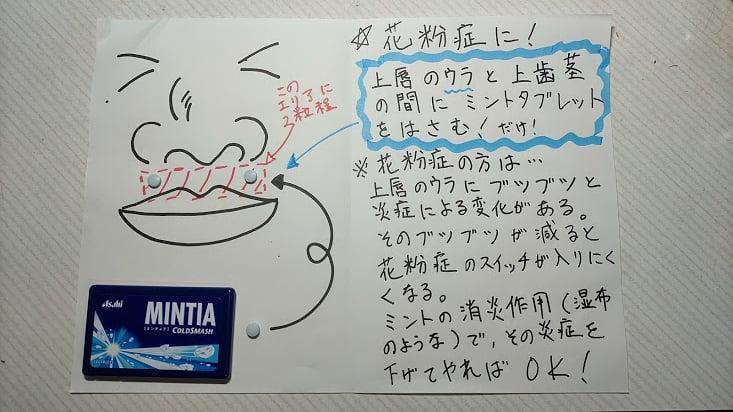 ☆花粉症に!
上唇のウラと上歯茎
の間にミントタブレット
をはさむ!だけ!
この
エリアに
2粒程
※花粉症の方は…
上唇のウラにブツブツと
炎症による変化がある。
そのブツブツが減ると
花粉症のスイッチが入りにく
くなる。
ミントの消炎作用(湿布
のような)で、その炎症を
下げてやればOK!
Asahi
MINTIA
[ミンティア] COLDSMASH